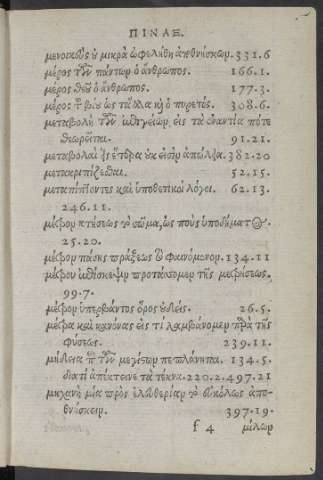 ΠΙΝΑΞ.
μενοικέως οὐ μικρὰ ὠφελήθη ἀποθνήσκων. 331.6
μέρος τῶν πάντων ὁ ἄνθρωπος. 166.1.
μέρος θεοῦ ὁ ἄνθρωπος. 177.3.
μέρος τοῦ βίου ὡς τἆλλα καὶ ὁ πυρετός. 308.6.
μεταβολὴ τῶν εἰς τὰ ἐναντία πότε
θεωρεῖται. 91.21.
μεταβολαὶ εἰς ἕτερα καὶ εἰσὶν 382.20
μετακριπίζεσθαι. 52.15.
μεταπίπτοντες καὶ ὑποθετικοὶ λόγοι. 62.13.
246.11.
μέτρον κτήσεως τὸ σῶμα, ὡς ποὺς ὑποδήματος.
25.20.
μέτρον πάσης πράξεως τὸ φαινόμενον. 134.11
μέτρου προτάσσομεν τῆς μετρήσεως.
99.7.
μέτρον ὑπερβάντος ὅρος οὐδείς. 26.5.
μέτρα καὶ κανόνας εἰς τί λαμβάνομεν παρὰ τῆς
φύσεως. 239.11.
μήδεια περὶ τῶν μεγίστων πεπλάνηται. 134.5.
διατί ἀπέκτεινε τὰ τέκνα. 220.2.497.21
μηχανὴ μία πρὸς ἐλευθερίαν τὸ εὐκόλως ἀπο-
θνήσκειν. 397.19.
f 4 μίλων